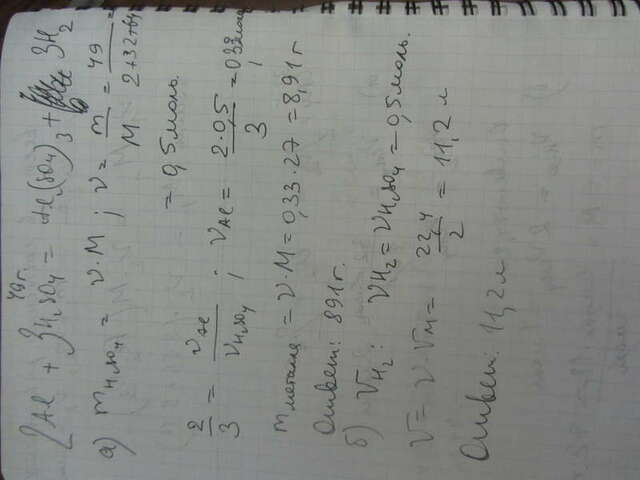 49г.
2Al + 3H₂SO₄ = Al₂(SO₄)₃ + 3H₂
а) m H₂SO₄ = ν·M ; ν = m/M = 49/(2+32+64)
= 0,5 моль.
2/3 = ν Al/ν H₂SO₄ ; ν Al = 2·0,5/3 = 0,33 моль
m металла = ν·M = 0,33·27 = 8,91 г
Ответ: 8,91 г.
б) V H₂: ν H₂ = ν H₂SO₄ = 0,5 моль.
V = ν·Vм = 22,4/2 = 11,2 л
Ответ: 11,2 л